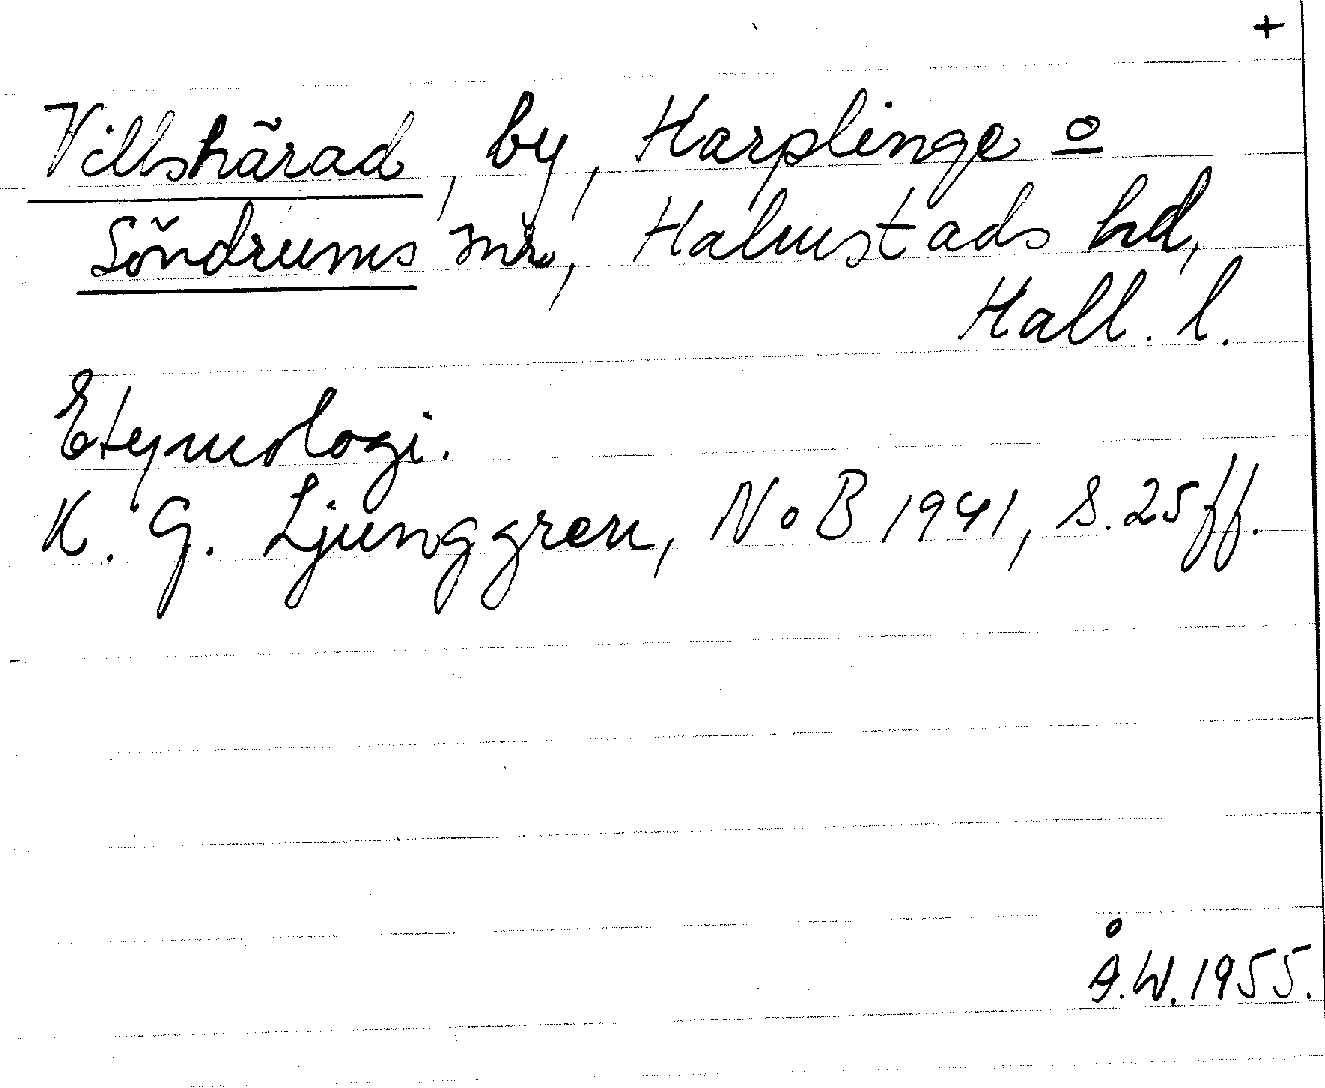 +
Villshärad, by, Harplinge o
Söndrums snr, Halmstads hd,
Hall. l.
Etymologi.
K. G. Ljunggren, NoB 1941, s. 25 ff.
Å.W. 1955.